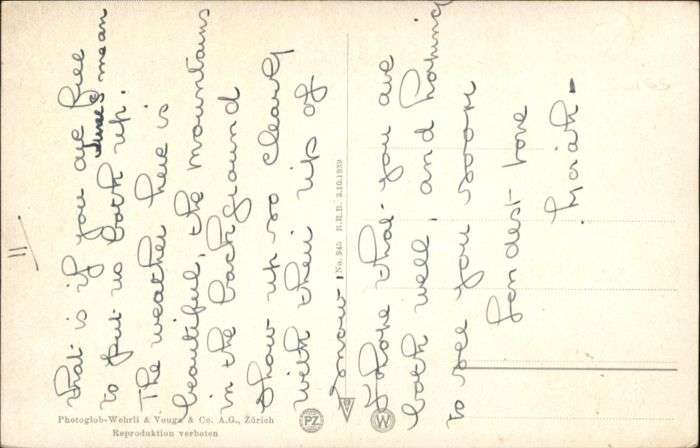 11
that is if you are free
mean
to put us both up.
The weather here is
beautiful, the mountains
in the background
show up so clearly
with their tips of
snow.
I hope that you are
both well, and hoping
to see you soon
fondest love
No. 345 R.H.B. 3.10.1939
Photoglob-Wehrli & Vouga & Co. A.G., Zürich
Reproduktion verboten
PZ
V
W